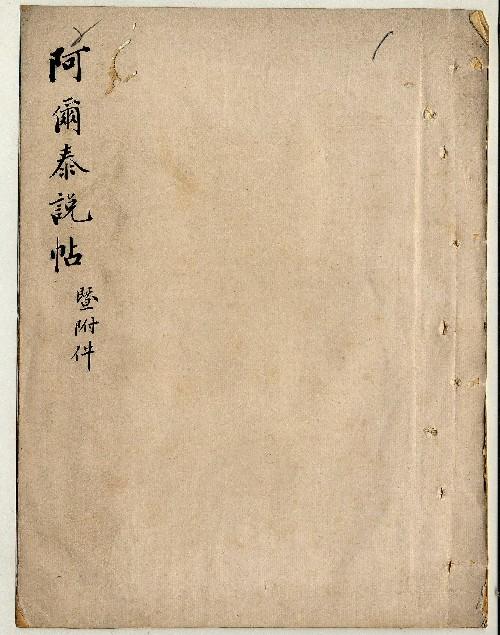 阿爾泰説帖
暨附件